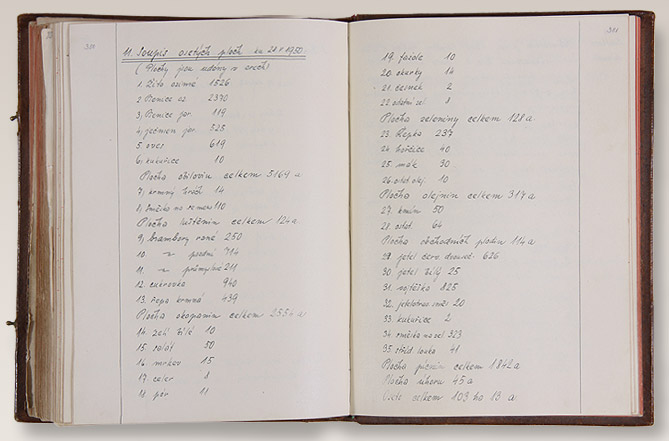 11. Soupis osetých ploch ku 28.V.1950
(Plochy jsou udány v arech)
1. Žito ozimé 1526
2. Pšenice oz 2370
3. Pšenice jar. 119
4. ječmen jar. 525
5. oves 619
6. kukuřice 10
Plocha obilovin celkem 5169 a
7. krmný hrách 14
8. směska na semeno 110
Plocha luštěnin celkem 124 a
9. brambory rané 250
10. -"- pozdní 714
11. -"- průmyslné 211
12. cukrovka 940
13. řepa krmná 439
Plocha okopanin celkem 2554 a
14. zelí bílé 10
15. salát 50
16. mrkev 15
17. celer 8
18. pór 11
381
19. fazole 10
20. okurky 14
21. česnek 2
22. ostatní zel. 8
Plocha zeleniny celkem 128 a
23. Řepka 237
24. hořčice 40
25. mák 30
26. ostat olej. 10
Plocha olejnin celkem 317 a
27. kmín 50
28. ostat. 64
Plocha obchodních plodin 114 a
29. jetel červ. dvouseč. 626
30. jetel bílý 25
31. vojtěška 825
32. jetelotrav. směs 20
33. kukuřice 2
34. směska na zel. 323
35. stříd. louka 41
Plocha pícnin celkem 1842 a
Plocha úhoru 45 a
celkem 103 ha 13 a